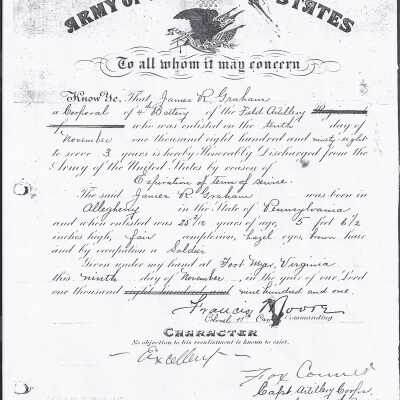 ARMY OF STATES
To all whom it may concern
Know Ye, That James R. Graham
a Corporal of 4th Battery of the Field Artillery
who was enlisted on the tenth day of
November one thousand eight hundred and ninety-eight
to serve 3 years is hereby Honorably Discharged from the
Army of the United States by reason of
Expiration of term of service.
The said James R. Graham was born in
Allegheny in the State of Pennsylvania
and when enlisted was 25 years of age, 5 feet 6 1/2
inches high, fair complexion, hazel eyes, brown hair
and by occupation a Soldier
Given under my hand at Fort Myer, Virginia
this ninth day of November, in the year of our Lord
one thousand eight hundred and nine hundred and one.
Francis Moore
Colonel Commanding
CHARACTER
No objection to his reenlistment is known to exist.
Excellent
Fox Conner
Capt. Artillery Corps.